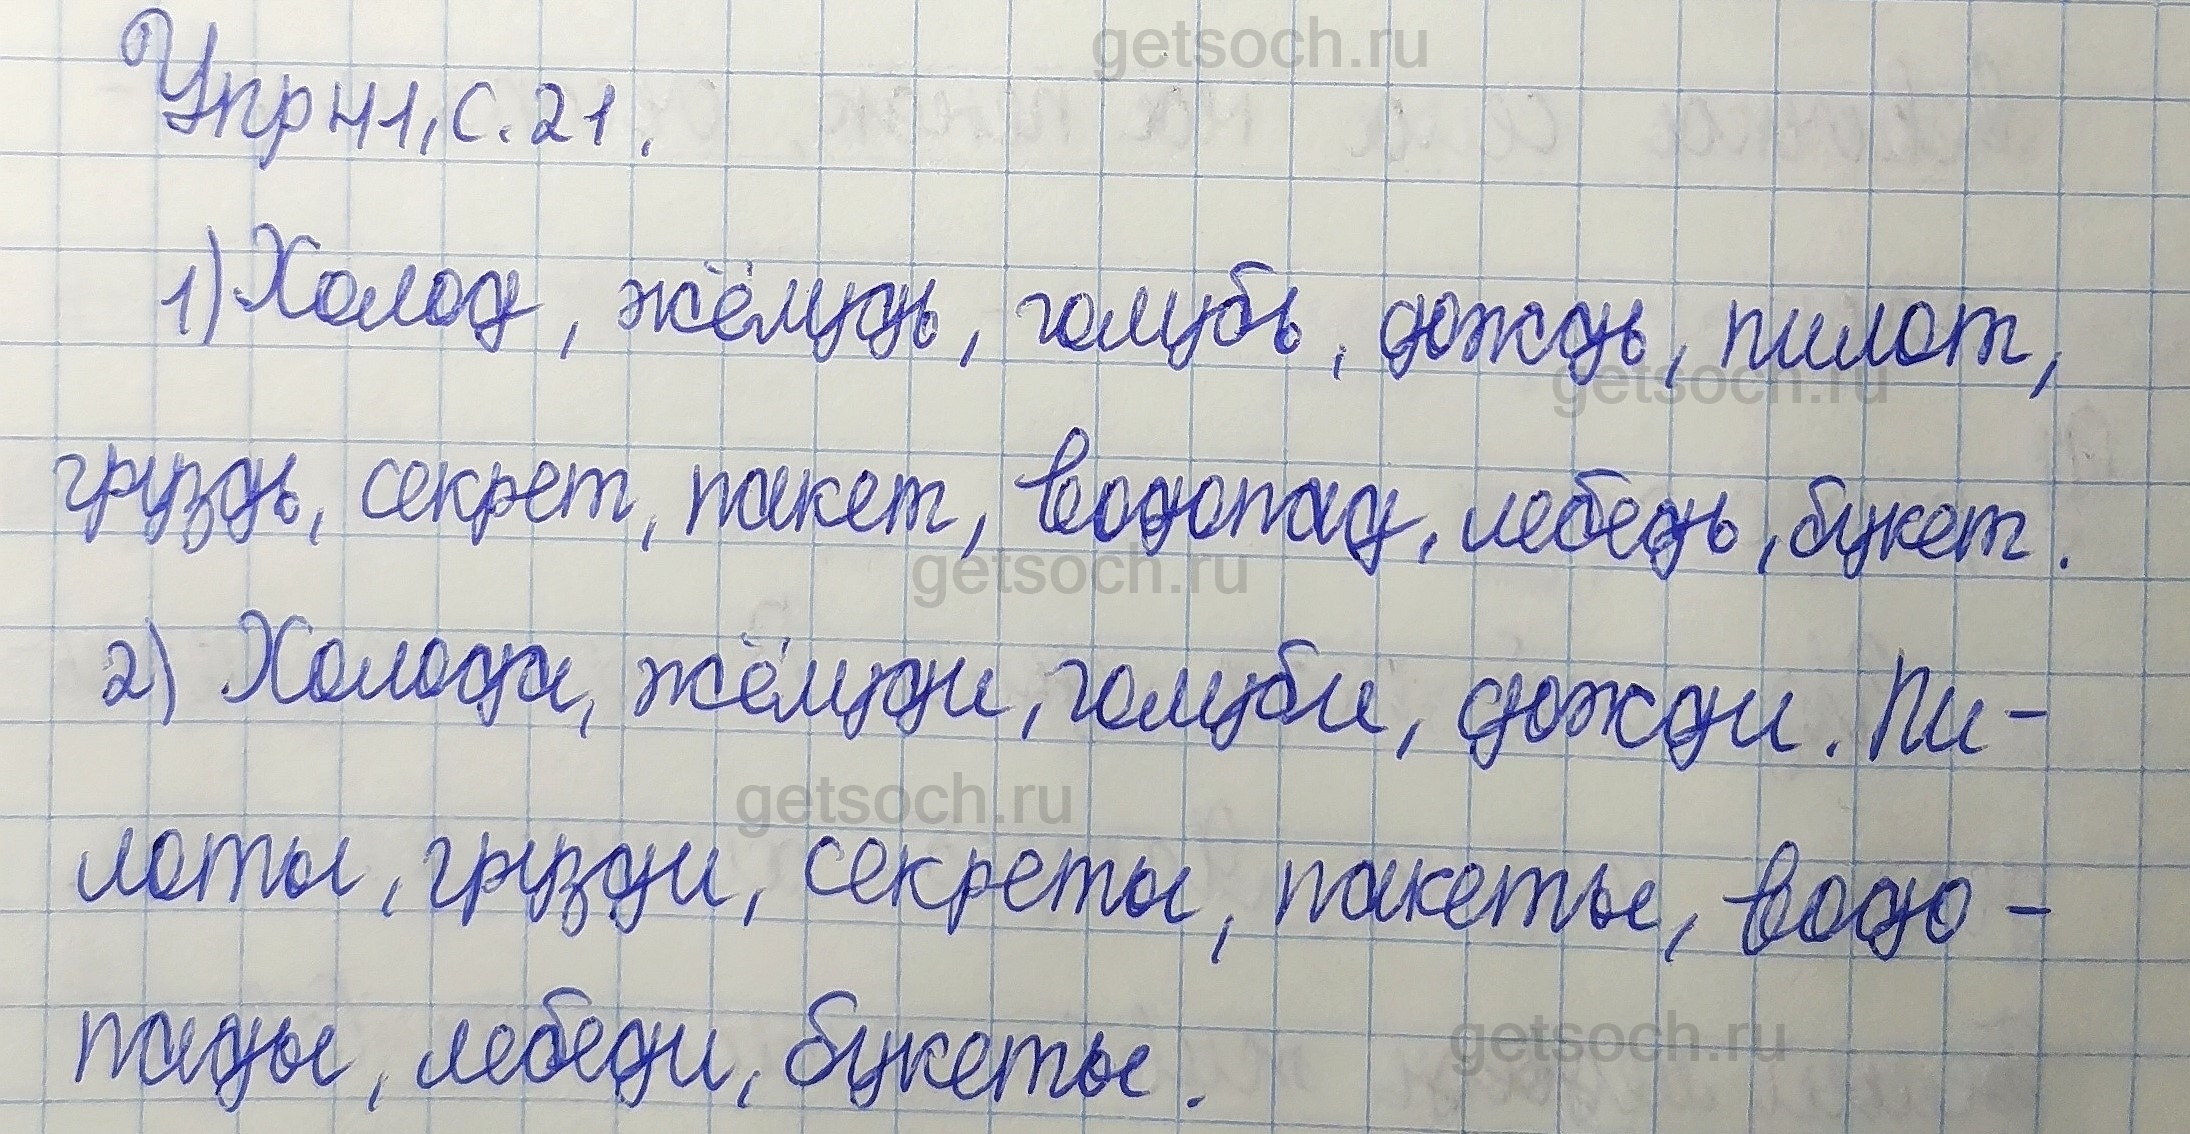 getsoch.ru
Упр 41, с. 21.
1) Холод, жёлудь, голубь, дождь, пилот,
getsoch.ru
груздь, секрет, пакет, водопад, лебедь, букет.
getsoch.ru
2) Холода, жёлуди, голуби, дожди. Пи-
getsoch.ru
лоты, грузди, секреты, пакеты, водо-
пады, лебеди, букеты.
getsoch.ru